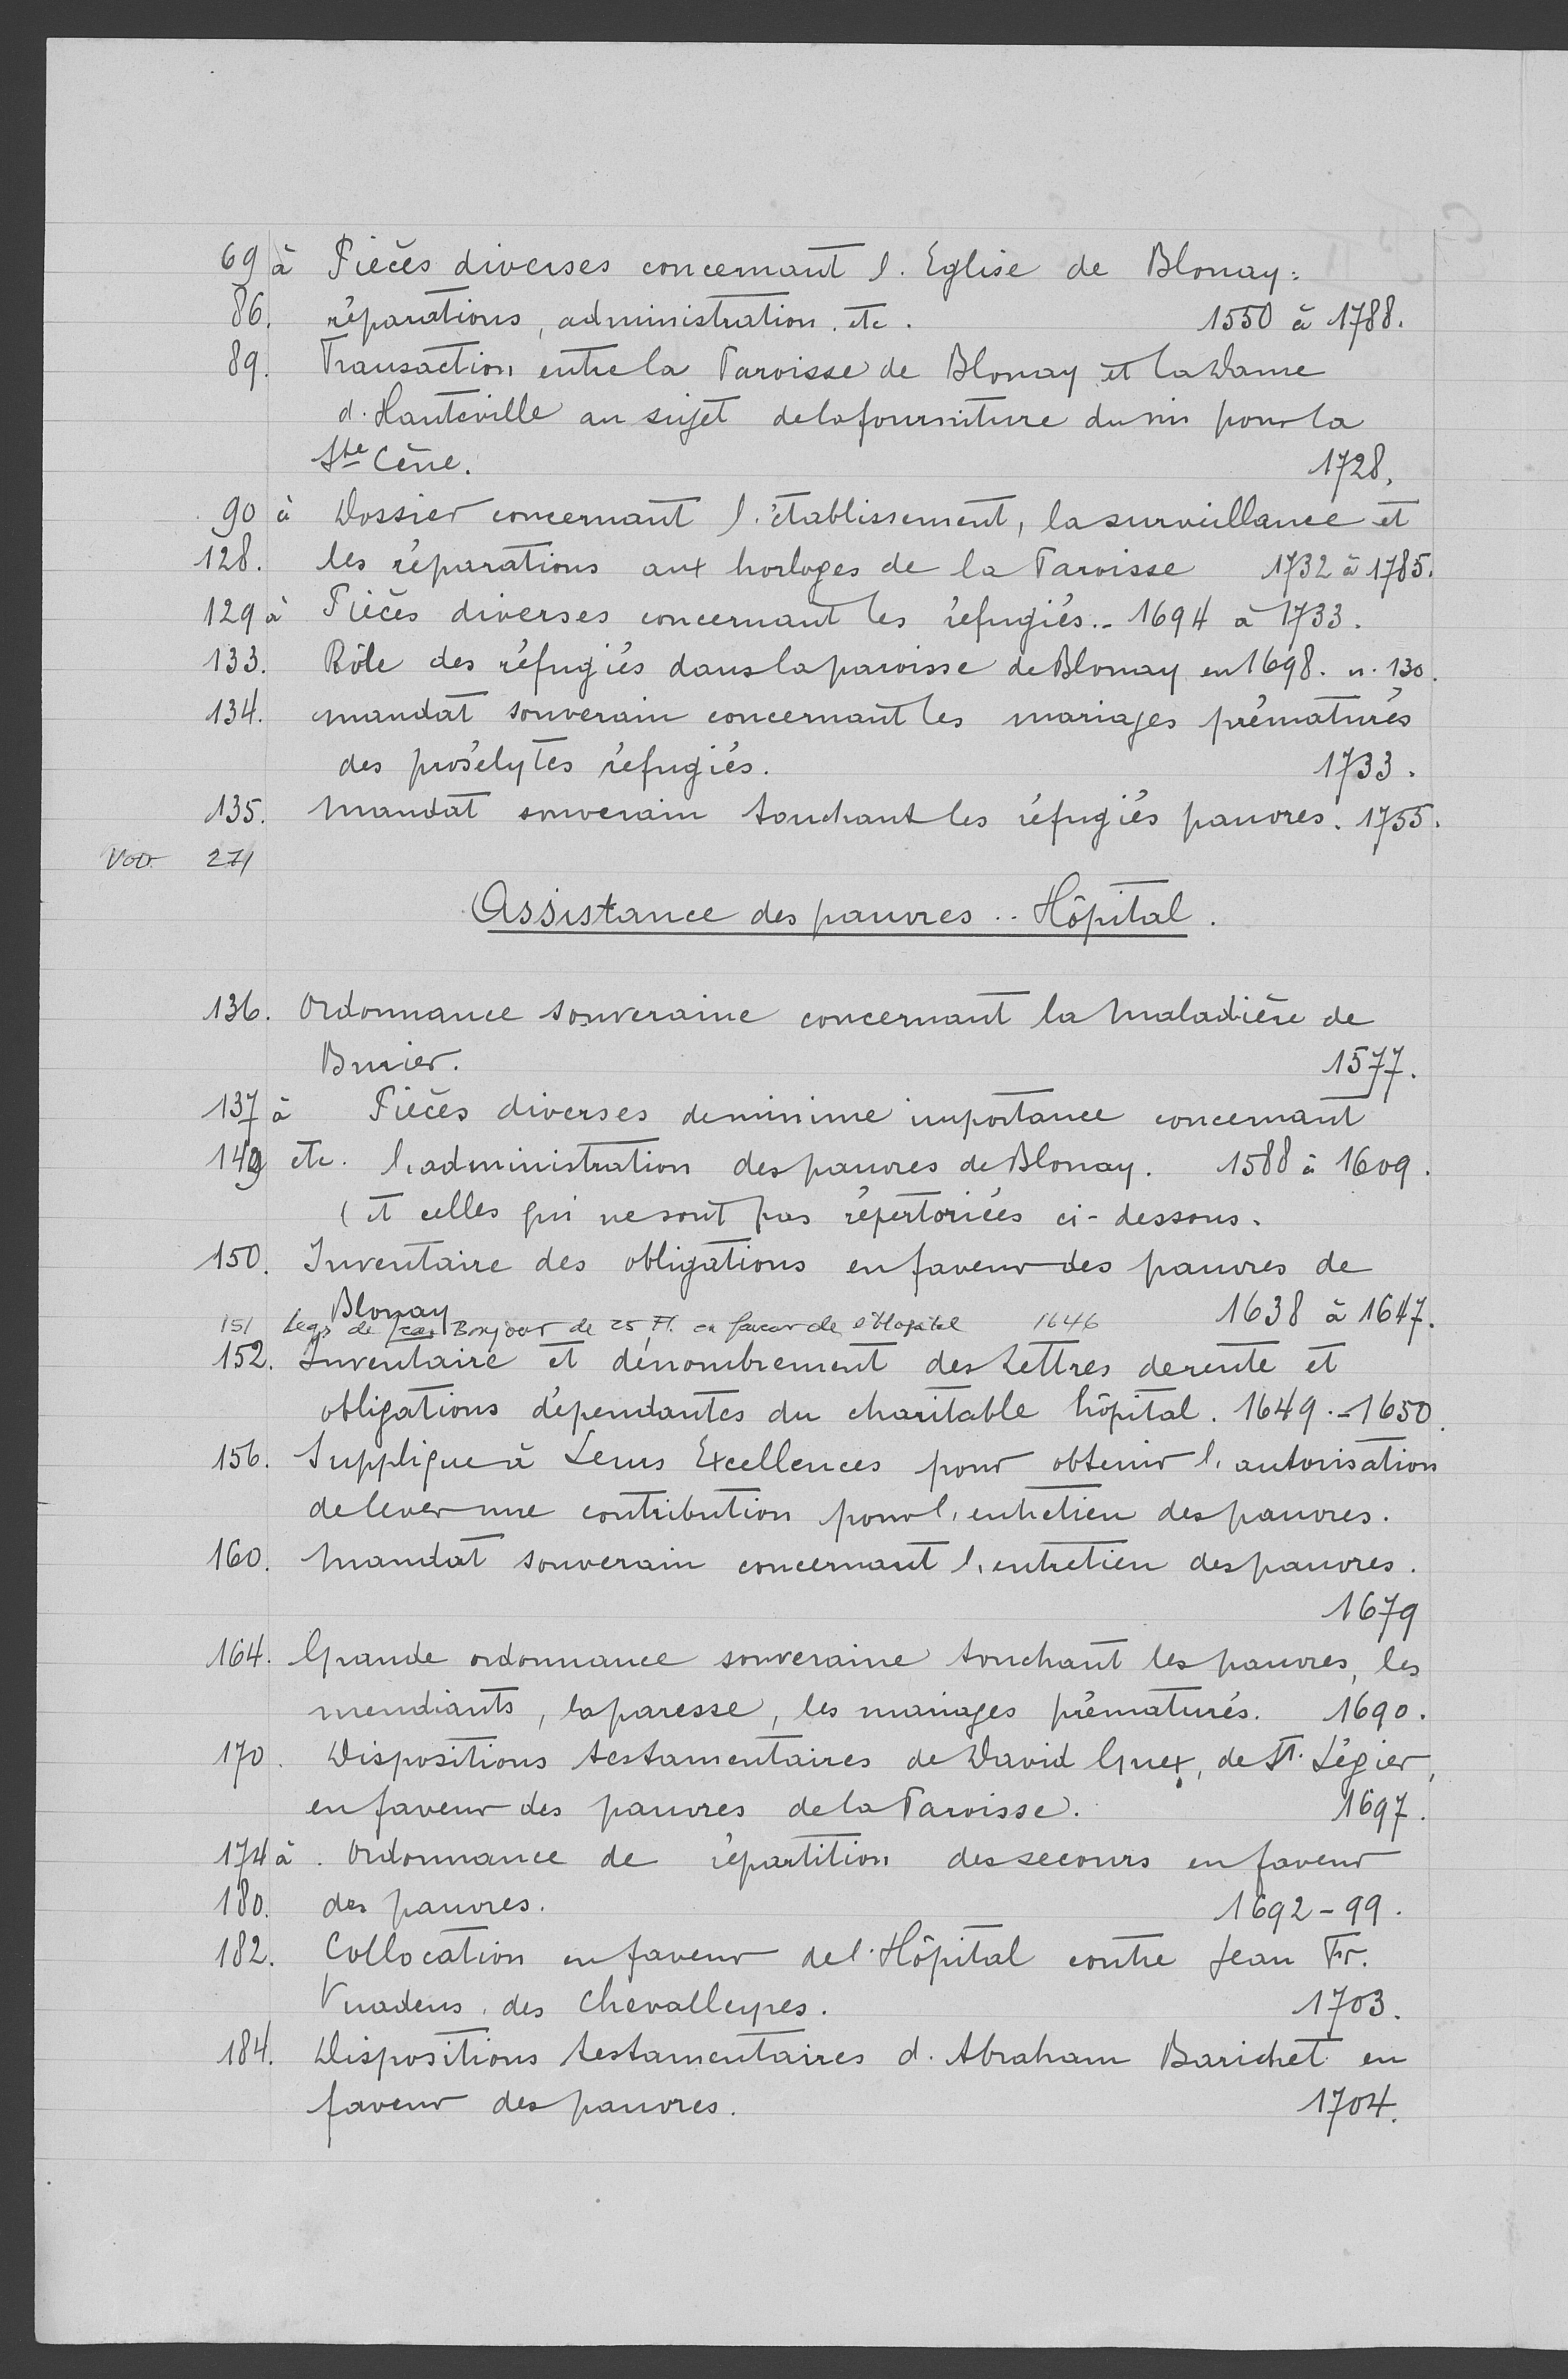 69 à Pièces diverses concernant l'Eglise de Blonay:
86. réparations, administration, etc. 1550 à 1788.
89. Transaction entre la Paroisse de Blonay et la Dame
d'Hauteville au sujet de la fourniture du vin pour la
Ste Cène. 1728.
90 à Dossier concernant l'établissement, la surveillance et
128. les réparations aux horloges de la Paroisse 1732 à 1785.
129 à Pièces diverses concernant les réfugiés.- 1694 à 1733.
133. Rôle des réfugiés dans la paroisse de Blonay en 1698. n. 130.
134. mandat souverain concernant les mariages prématurés
des prosélytes réfugiés. 1733.
135. Mandat souverain touchant les réfugiés pauvres. 1755.
Voir 271
Assistance des pauvres.- Hôpital.
136. Ordonnance souveraine concernant la Maladière de
Burier. 1577.
137 à Pièces diverses de minime importance concernant
149 etc. l'administration des pauvres de Blonay. 1588 à 1609.
(et celles qui ne sont pas répertoriées ci-dessous.
150. Inventaire des obligations en faveur des pauvres de
Blonay 1638 à 1647.
151 Legs de Jean Bonjour de 25 Fl. en faveur de l'Hôpital 1646
152. Inventaire et dénombrement des Lettres de rente et
obligations dépendantes du charitable hôpital. 1649.-1650.
156. Supplique à Leurs Excellences pour obtenir l'autorisation
de lever une contribution pour l'entretien des pauvres.
160. Mandat souverain concernant l'entretien des pauvres.
1679
164. Grande ordonnance souveraine touchant les pauvres, les
mendiants, la paresse, les mariages prématurés. 1690.
170. Dispositions testamentaires de David Guex, de St. Légier,
en faveur des pauvres de la Paroisse. 1697.
174 à. Ordonnance de répartition des secours en faveur
180. des pauvres. 1692-99.
182. Collocation en faveur de l'Hôpital contre Jean Fr.
Vuadens, des Chevalleyres. 1703.
184. Dispositions testamentaires d'Abraham Barichet en
faveur des pauvres. 1704.